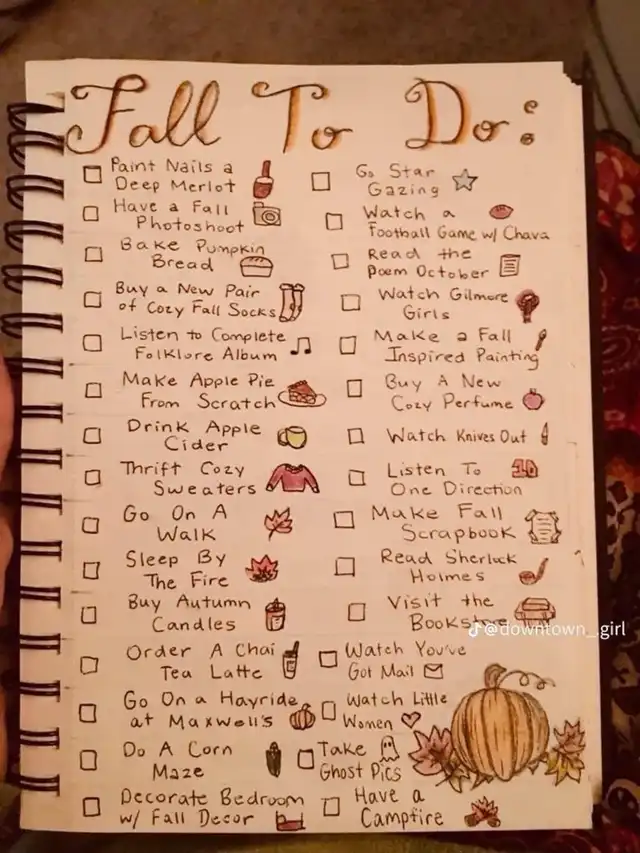 Fall To Do:
Paint Nails a
Deep Merlot
Have a Fall
Photoshoot
Bake Pumpkin
Bread
Buy a New Pair
of Cozy Fall Socks
Listen to Complete
Folklore Album
Make Apple Pie
From Scratch
Drink Apple
Cider
Thrift Cozy
Sweaters
Go On A
Walk
Sleep By
The Fire
Buy Autumn
Candles
Order A Chai
Tea Latte
Go On a Hayride
at Maxwell's
Do A Corn
Maze
Decorate Bedroom
w/ Fall Decor
Go Star
Gazing
Watch a
Football Game w/ Chava
Read the
Poem October
Watch Gilmore
Girls
Make a Fall
Inspired Painting
Buy A New
Cozy Perfume
Watch Knives Out
Listen To
One Direction
1D
Make Fall
Scrapbook
Read Sherlock
Holmes
Visit the
Bookstore
@downtown_.girl
Watch You've
Got Mail
Watch Little
Women
Take
Ghost Pics
Have a
Campfire